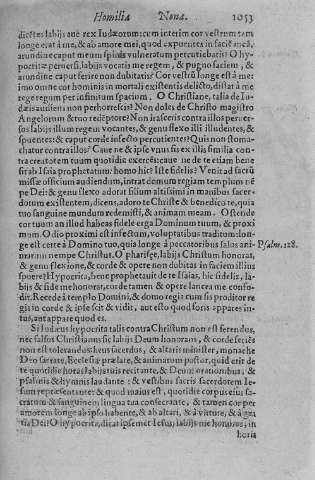 Homilia Nona. 1053
dicetes labijs aue rex Iudæorum: cum interim cor vestrum tam
longe erat à me, & ab amore mei, quod expuentes in facie meã,
arundine caput meum spinis vulneratum percutiebatis? O hy-
pocritæ peruersi, labijs vocatis me regem, & pugno faciem, &
arundine caput ferire non dubitatis? Cor vestrũ longe est à me:
imo omne cor hominis in mortali existentis delicto, distat à me
rege regum per infinitum spacium. O Christiane, talia de Iu-
dæis audiens non perhorrescis? Non doles de Christo magistro
Angelorum & tuo redẽptore? Non irasceris contra illos peruer-
sos labijs illum regem vocantes, & genu flexo illi illudentes, &
spuentes: & caput corde infecto percutientes? Quis non stoma-
chatur contra illos? Caue ne & ipse vnus sis ex illis similia con-
tra creatorem tuum quotidie exercẽs: caue ne de te etiam bene
sit ab Isaia prophetatum: homo hic! Iste fidelis? Venit ad sacrũ
missæ officium audiendum, intrat domum regiam templum nẽ
pe Dei: & genu flexo adorat filium altissimi in manibus sacer-
dotum existentem, dicens, adoro te Christe & benedico te, quia
tuo sanguine mundum redemisti, & animam meam. Ostende
cor tuum an illud habeas fidele erga Dominum tuum, & proxi
mum. O dio proximi est infestum, voluptatibus traditum lon-
ge est certe à Domino tuo, quia longe à peccatoribus salus ani- Psalm. 128.
marum nempe Christus. O pharisęe, labijs Christum honoras,
& genu flexione, & corde & opere non dubitas in faciem illius
spuere? Hypocrita, bene prophetauit de te Isaias, hic fidelis, la-
bijs & fide me honorat, cor de tamen & opere lancea me confo-
dit. Recede à templo Domini, & domo regia cum sis proditor re
gis in corde & ipse scit & vidit, aut esto quod foris appares in-
tus, aut appare quod es.
Si Iudæus hypocrita talis contra Christum non est ferendus,
nec falsus Christianus sic labijs Deum honorans, & corde feriẽs
non est tolerandus: heus sacerdos, & altaris minister, monache
Deo sacrate, Ecclesiæ prælate, & animarum pastor, quid erit de
te quotidie horas labijs tuis recitante, & Deum orationibus, &
psalmis & hymnis laudante: & vestibus sacris sacerdotem Ie-
sum repræsentante: & quod maius est, quotidie corpus eius sa-
cratum & sanguinem lingua tua consecrante, & tamen cor per
amorem longe ab ipso habente, & ab altari, & à virtute, & à gra
tia Dei? O hypocrita, dicat ipsemet Iesus, labijs me honoras, in
horia